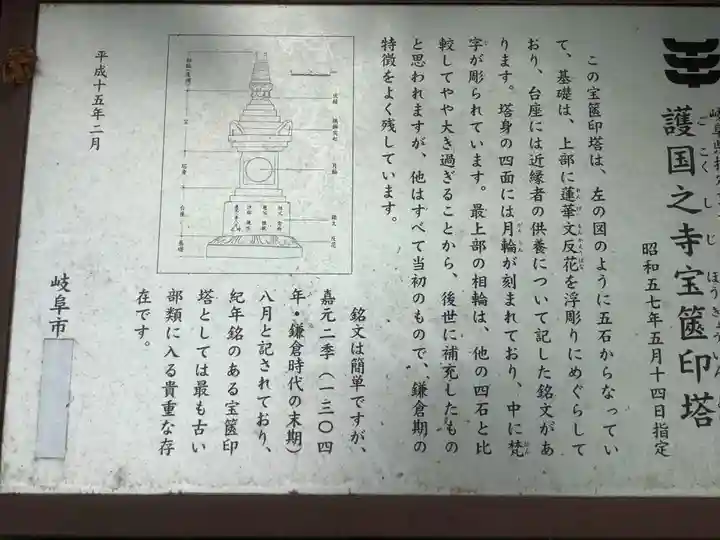 護国之寺宝篋印塔
ご こく し じ ほう きょう いん
昭和五七年五月十四日指定
この宝篋印塔は、左の図のように五石からなってい
て、基礎は、上部に蓮華文反花を浮彫りにめぐらして
おり、台座には近縁者の供養について記した銘文があ
ります。塔身の四面には月輪が刻まれており、中に梵
字が彫られています。最上部の相輪は、他の四石と比
較してやや大き過ぎることから、後世に補充したもの
と思われますが、他はすべて当初のもので、鎌倉期の
特徴をよく残しています。
銘文は簡単ですが、
嘉元二季(一三〇四
年・鎌倉時代の末期)
八月と記されており、
紀年銘のある宝篋印
塔としては最も古い
部類に入る貴重な存
在です。
平成十五年二月
岐阜市
月輪
塔身
台座
基礎